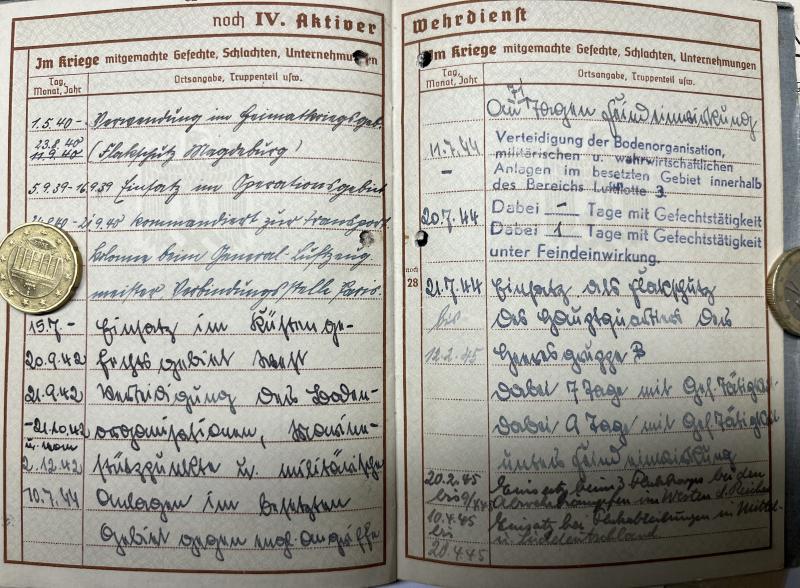 noch IV. Aktiver
Im Kriege mitgemachte Gefechte, Schlachten, Unternehmungen
Tag, Monat, Jahr
Ortsangabe, Truppenteil usw.
1.5.40 - Verwendung im Heimatkriegsgeb.
23.8.40
(Flakschutz Magdeburg)
5.9.39-16.9.39 Einsatz im Operationsgebiet
21.9.40 kommandiert zur Transport
kolonne beim General-Luftzeug
meister Verbindungsstelle Paris.
15.7.- Einsatz im Küstenge-
20.9.42 fechtsgebiet West
21.9.42 Verteidigung der Boden-
-21.10.42 organisationen, Marine-
u. vom
2.12.42 stützpunkte u. militärische
10.7.44 Anlagen im besetzten
Gebiet gegen engl. Angriffe
Wehrdienst
Im Kriege mitgemachte Gefechte, Schlachten, Unternehmungen
Tag, Monat, Jahr
Ortsangabe, Truppenteil usw.
71
An Tagen Feindeinwirkung
11.7.44 Verteidigung der Bodenorganisation,
- militärischen u. wehrwirtschaftlichen
Anlagen im besetzten Gebiet innerhalb
des Bereichs Luftflotte 3.
20.7.44 Dabei — Tage mit Gefechtstätigkeit
Dabei 1 Tage mit Gefechtstätigkeit
unter Feindeinwirkung.
noch
28
21.7.44 Einsatz als Flakschutz
bis des Hauptquartiers der
12.2.45 Heeresgruppe B
dabei 7 Tage mit Gef. Tätigkeit
dabei 9 Tage mit Gef. Tätigkeit
unter Feindeinwirkung
20.2.45 Einsatz beim Flakkorps bei den
bis Abwehrkämpfen im Westen d. Reiches
10.4.45 Einsatz bei Flakabteilungen in Mittel-
bis u. Süddeutschland.
20.4.45